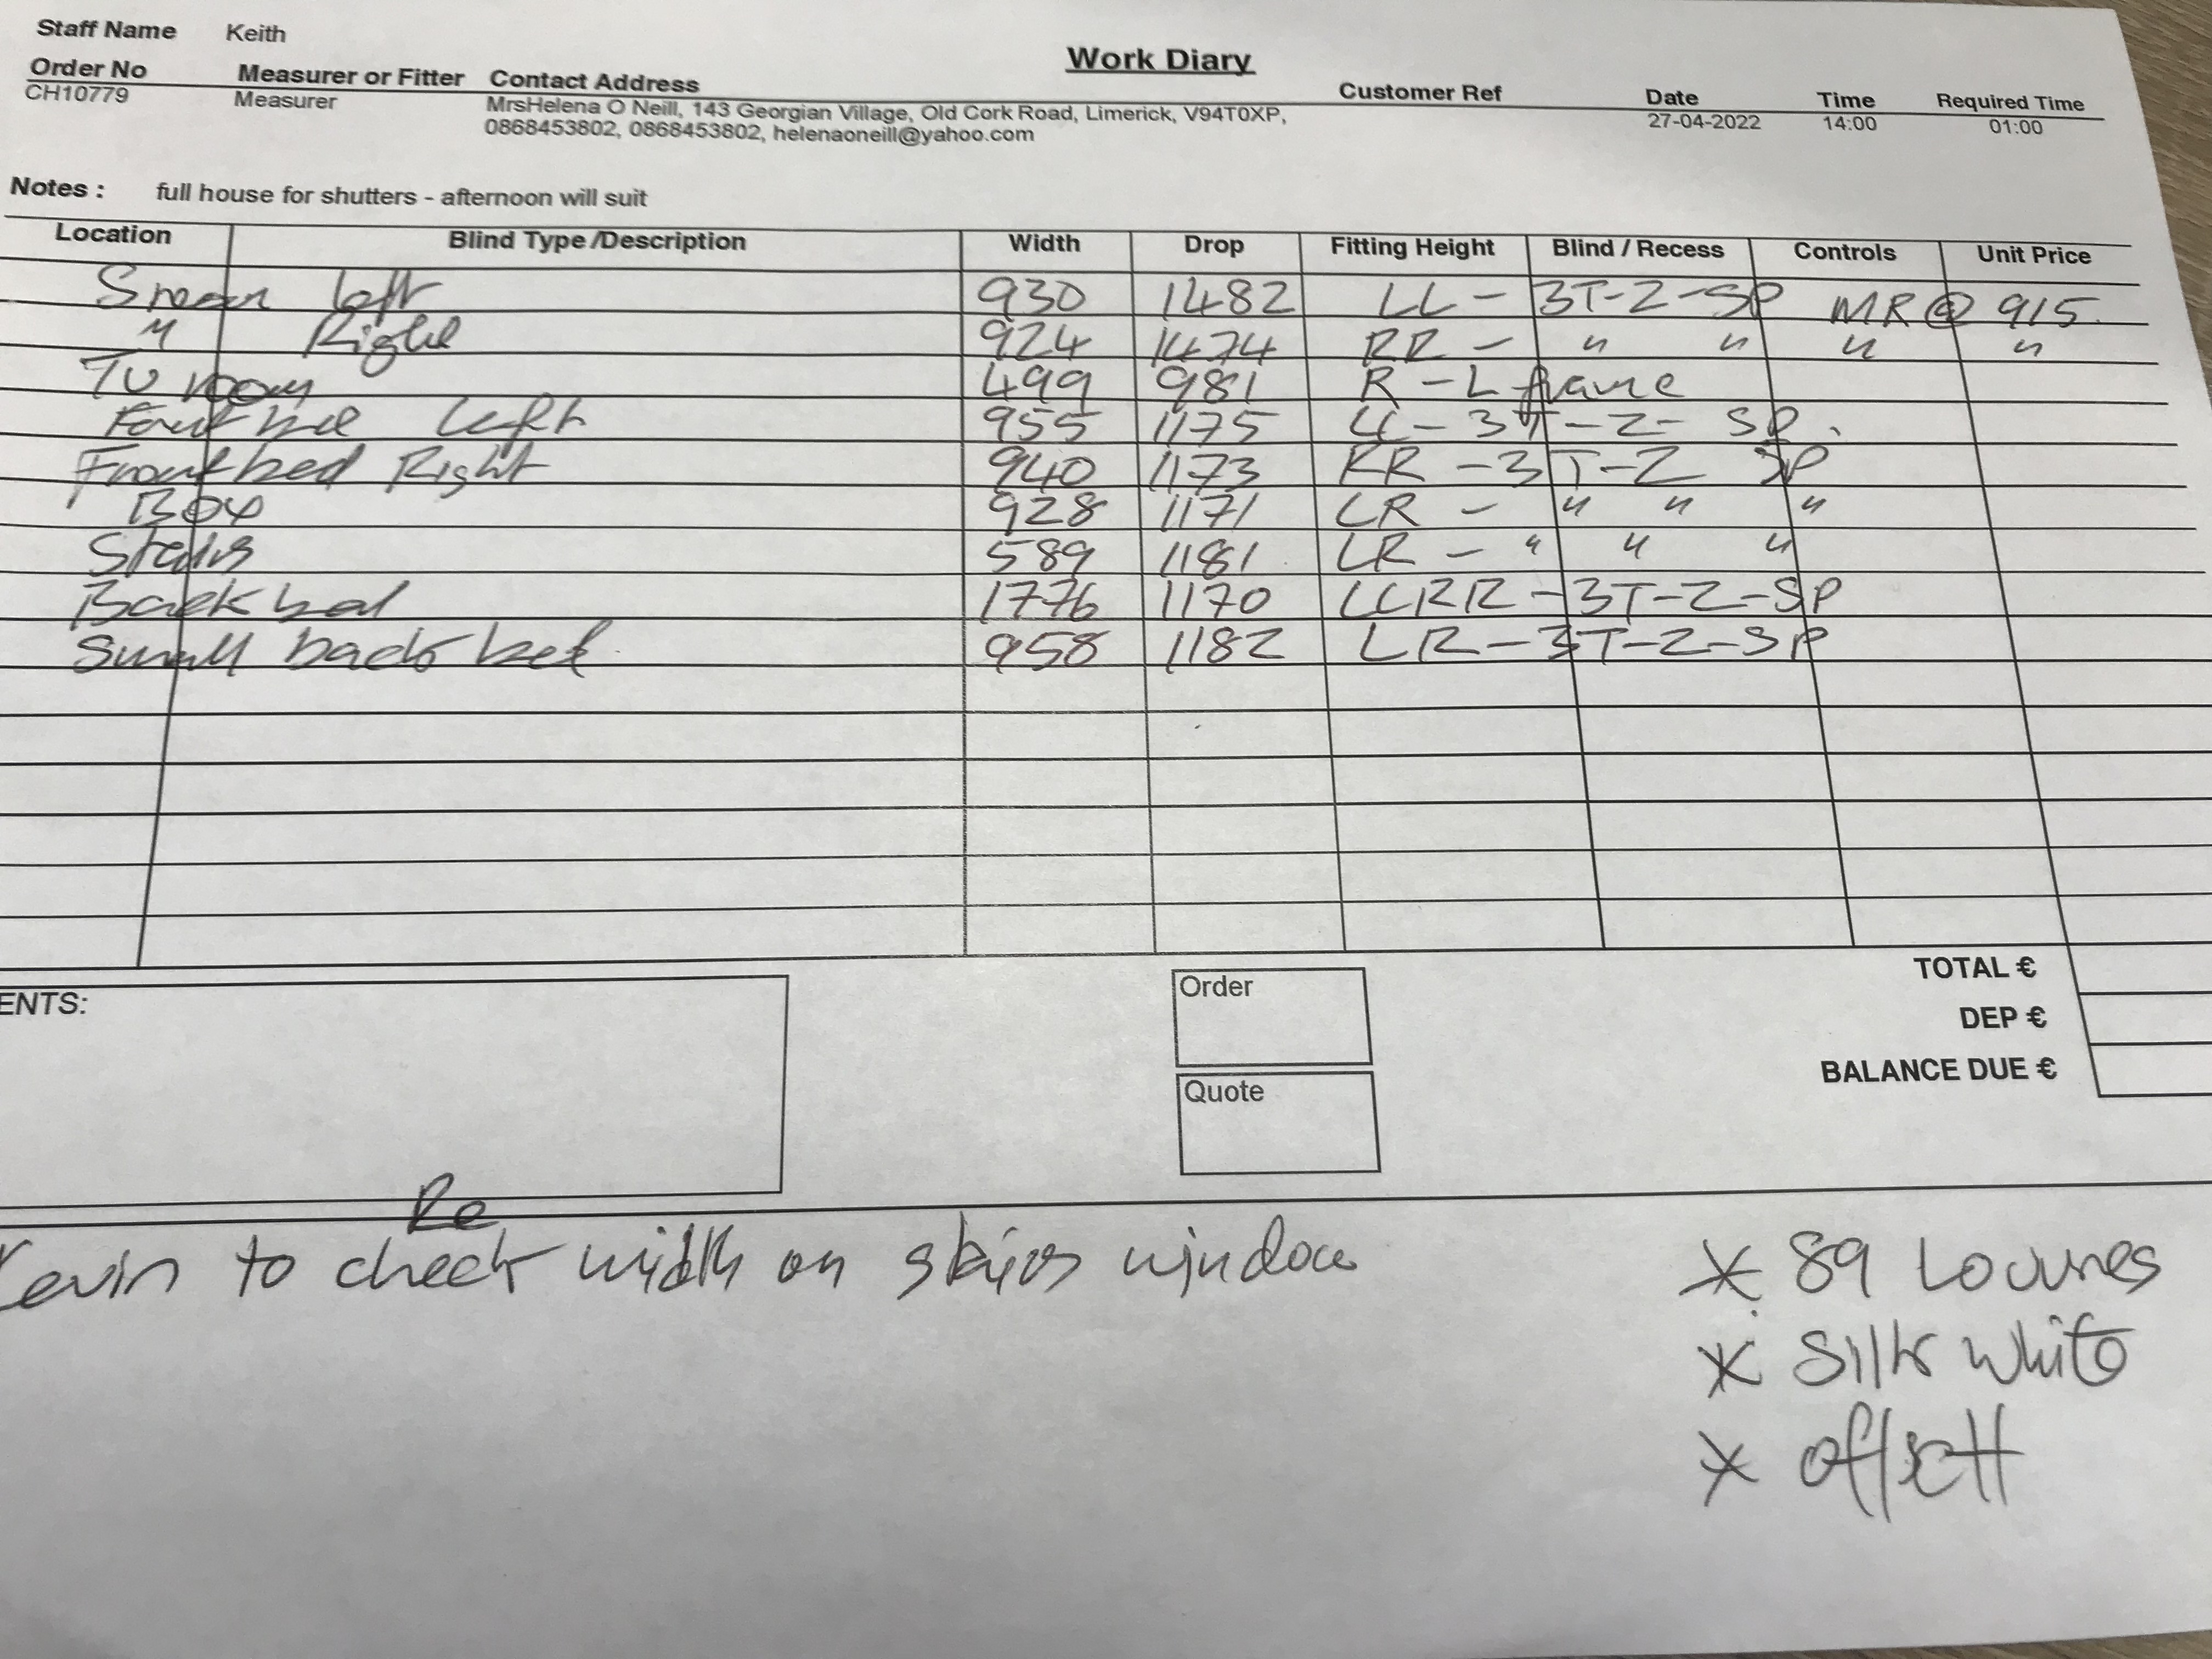 Staff Name Keith
Work Diary
Order No Measurer or Fitter Contact Address Customer Ref Date Time Required Time
CH10779 Measurer MrsHelena O Neill, 143 Georgian Village, Old Cork Road, Limerick, V94T0XP, 27-04-2022 14:00 01:00
0868453802, 0868453802, helenaoneill@yahoo.com
Notes : full house for shutters - afternoon will suit
Location Blind Type /Description Width Drop Fitting Height Blind / Recess Controls Unit Price
left 930 1482 LL - 3T-Z-SP MR@ 915.
" Right 924 1474 RR - " " " "
TV room 499 981 R - L frame
Left 955 1175 LL - 3T-Z- SP.
Front bed Right 940 1173 RR - 3T-Z SP
Box 928 1171 LR - " " "
Stairs 589 1181 LR - " " "
Back bed 1776 1170 LLRR - 3T-Z-SP
Small back bed 958 1182 LR - 3T-Z-SP
ENTS:
Order
Quote
TOTAL €
DEP €
BALANCE DUE €
Re
Kevin to check width on stairs window
* 89 Louvres
* Silk white
* offsett